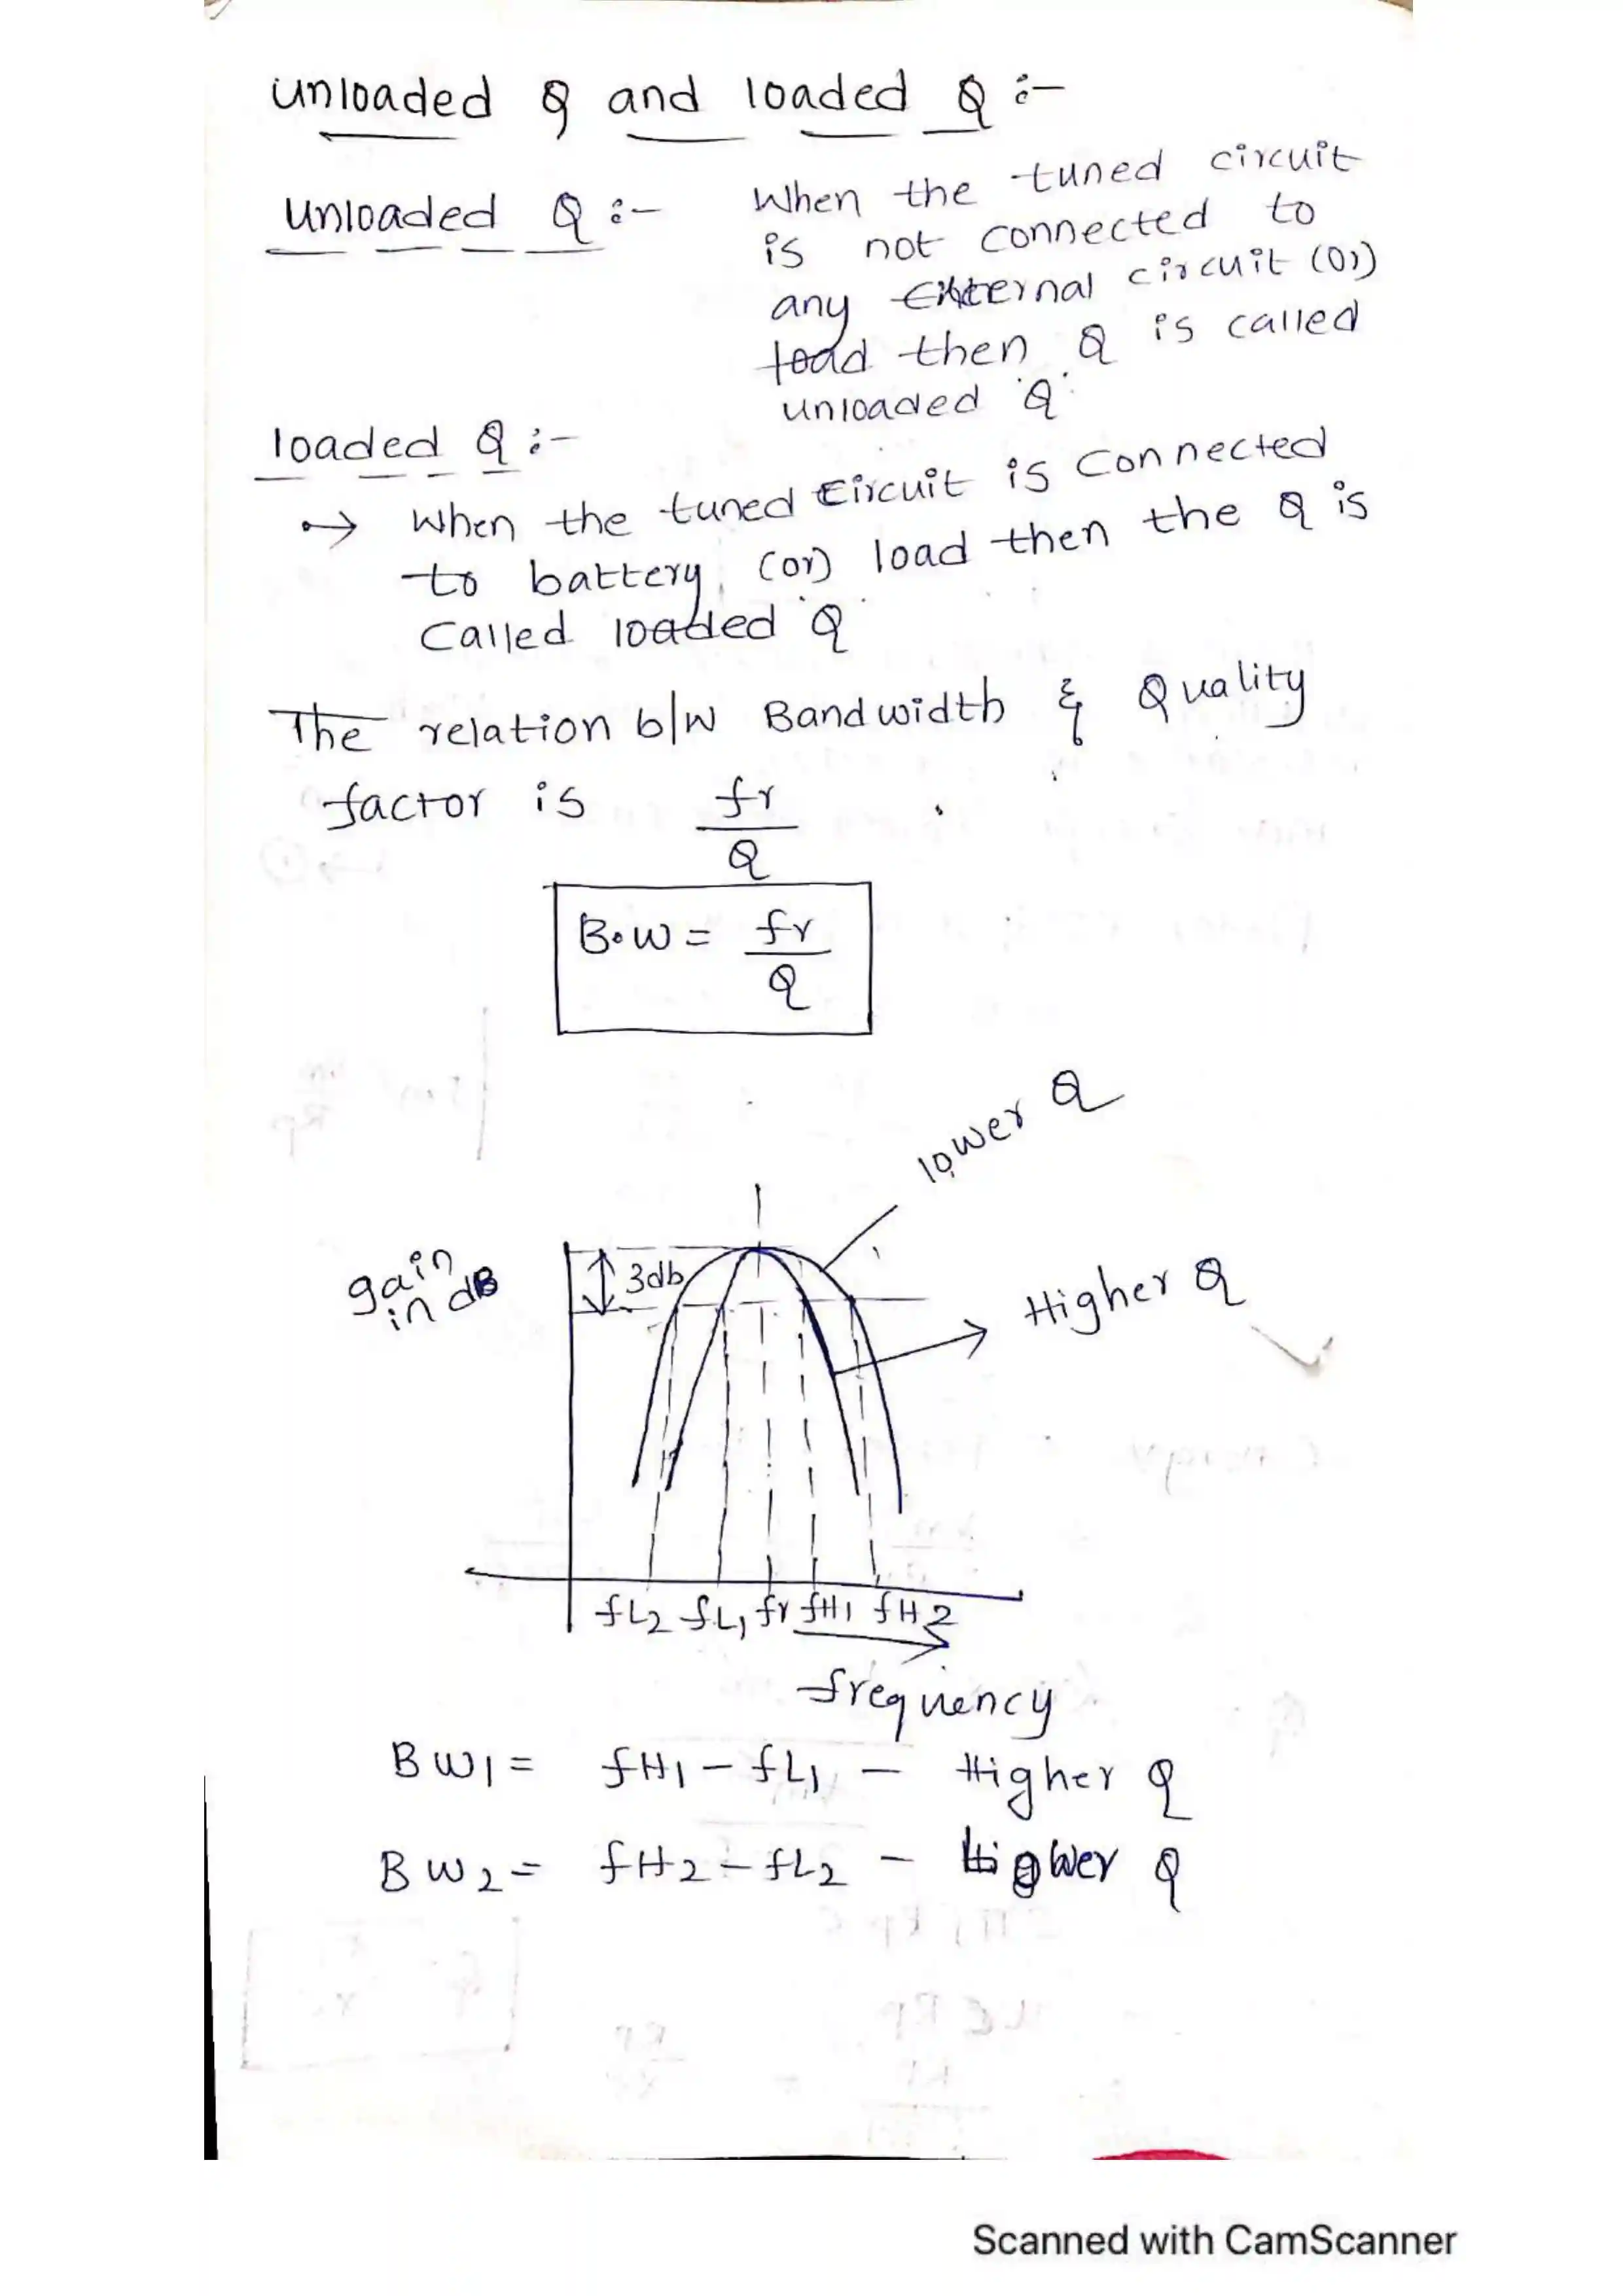 unloaded Q and loaded Q :-
unloaded Q :- When the tuned circuit
is not connected to
any External circuit (or)
load then Q is called
unloaded 'Q'
loaded Q :-
→ When the tuned circuit is connected
to battery, (or) load then the Q is
called loaded 'Q'
The relation b/w Bandwidth & Quality
factor is fr
Q
B.W = fr
Q
lower Q
gain
in dB
3db
Higher Q
fL2 fL1 fr fH1 fH2
frequency
BW1 = fH1 - fL1 - Higher Q
BW2 = fH2 - fL2 - lower Q
Scanned with CamScanner